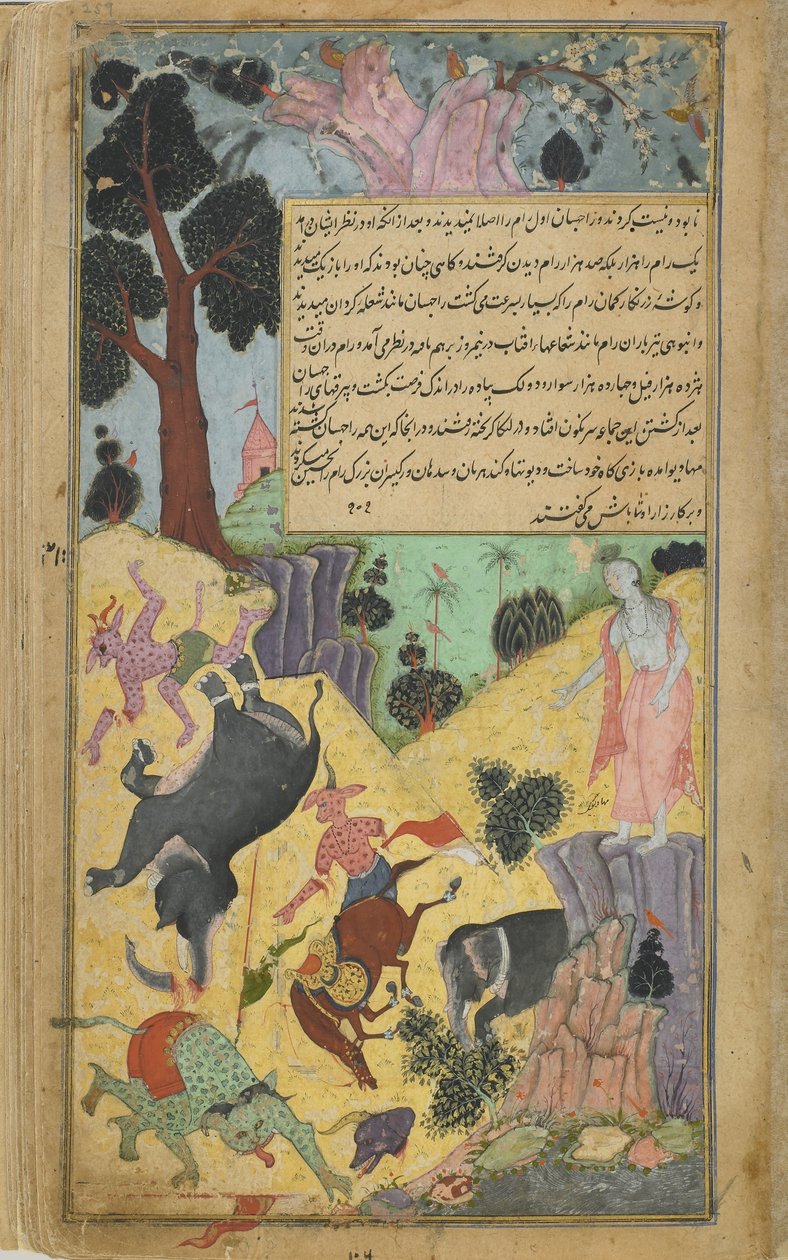 259
نابود و نیست کردند و راجسان اول رام را اصلا نمیدیدند و بعد از آنکه او در نظر ایشان در آمد
یک رام را هزار بلکه صد هزار رام دیدن گرفتند و گاهی چنان بودند که او را باز یک میدیدند
و گوشهٔ زرنگار کمان رام را که بسیار بسرعت می گشت راجسان مانند شعلهٔ گردان میدیدند
و انبوهی تیرباران رام مانند شعاعهای افتاب در نیمروز بر همه در نظر می آمد و رام در ان وقت
هژده هزار فیل و چهارده هزار سوار و دو لک پیاده را در اندک فرصت بکشت و بیرقهای راجسان
بعد از کشتن این جماعه سرنگون افتاد و در لنکا گریخته رفتند و در انجا که این همه راجسان کشته شدند
مهادیو امده بازی گاه خود ساخت و دیوتها و گندهربان و سدهان و رکیسران بزرگ رام را تحسین میکردند
و بر کارزار او شاباش می گفتند
۲۰۲
مهادیو